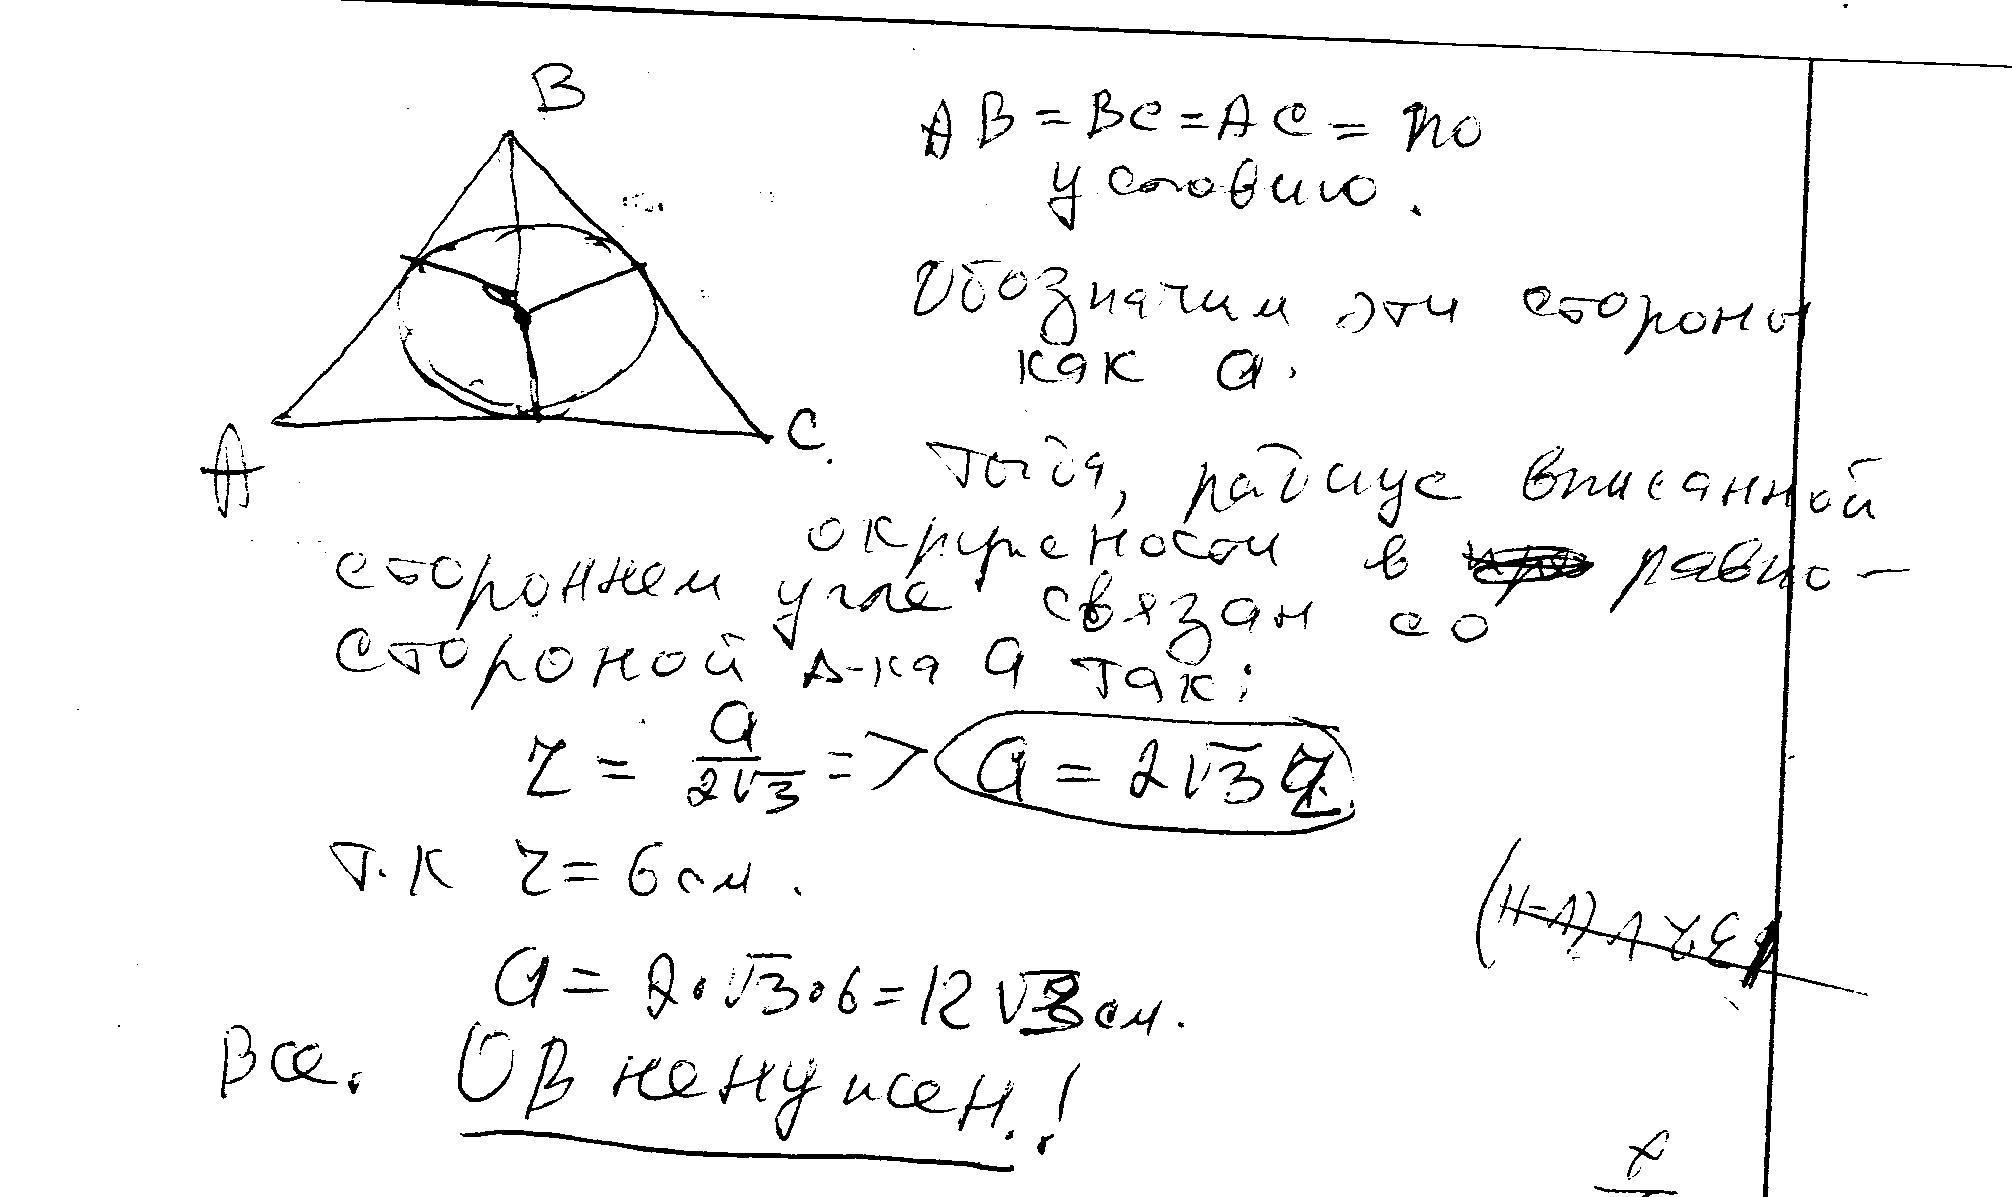 B
A
C.
AB = BC = AC = по
условию.
Обозначим эти стороны
как a.
Тогда, радиус вписанной
окружности в равно-
стороннем угле связан со
стороной Δ-ка a так:
r = a/2√3 => a = 2√3 r
т.к r = 6 см.
a = 2·√3·6 = 12√3 см.
Все. OB не нужен.!
x